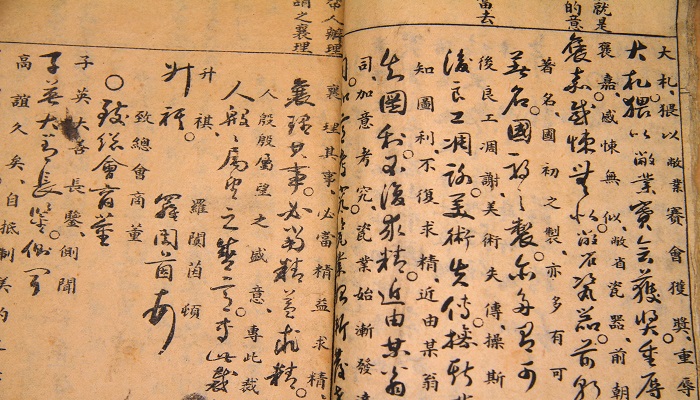 就是
的意
當去
大札猥以敝業賽會獲獎重辱
大札猥以敝業賽會獲獎重辱
褒嘉感悚無似敝省瓷器前朝
褒嘉感悚無似敝省瓷器前朝
著名國初之製亦多有可
著名國初之製亦多有可
後良工凋謝美術失傳操斯
後良工凋謝美術失傳操斯
知圖利不復求精近由某翁
知圖利不復求精近由某翁
司加意考究瓷業始漸發達
人辦理
謂之襄理
襄理其事必當精益求精
襄理其事必當精益求精
人殷殷屬望之盛意專此裁
人殷殷屬望之盛意專此裁
升祺 羅閬茵頓
升祺 羅閬茵頓
致總會商董
致總會商董
子英大善長鑒側聞
子英大善長鑒側聞
高誼久矣自抵制美約